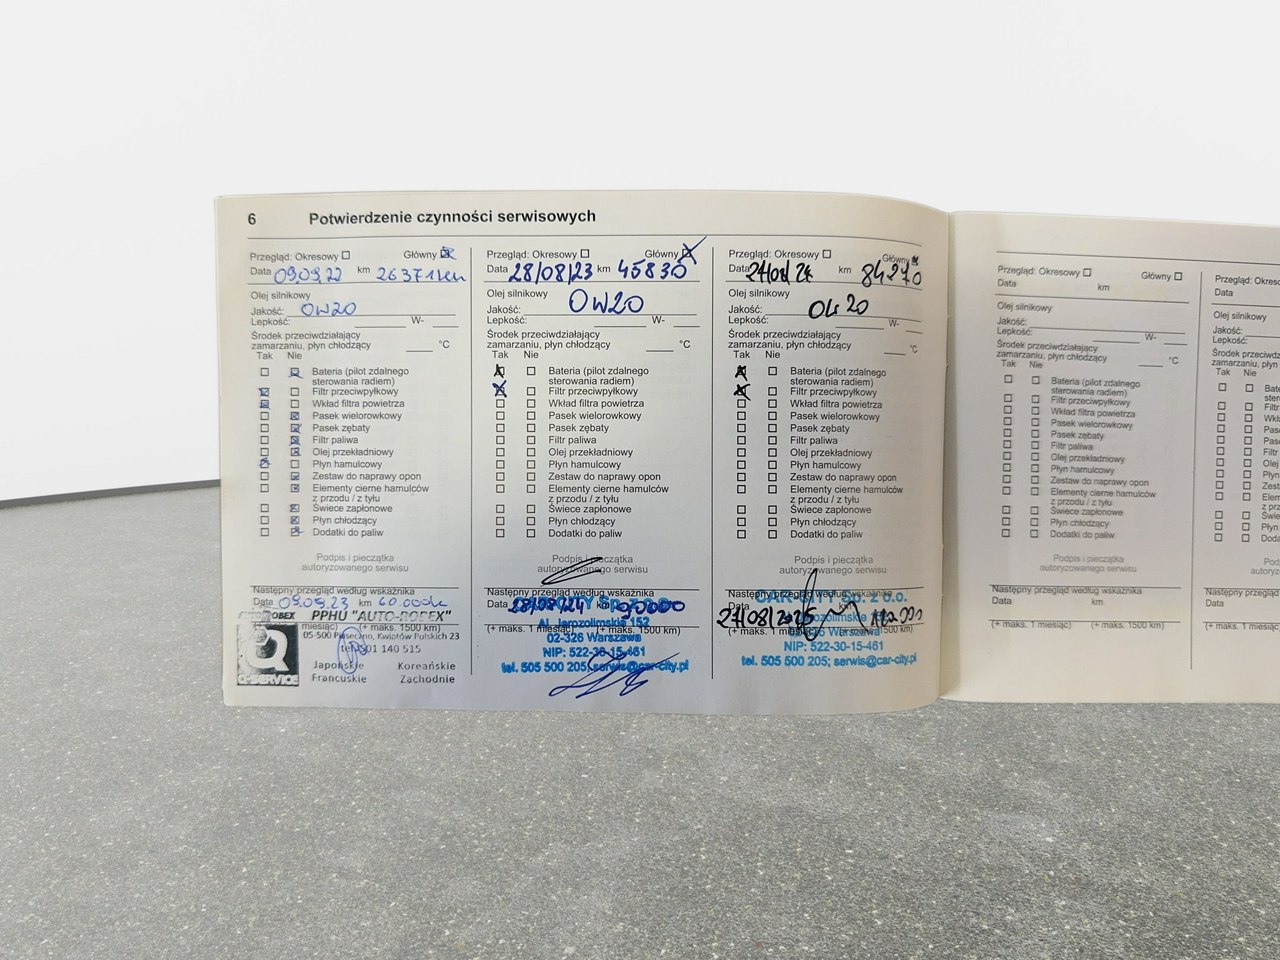 6 Potwierdzenie czynności serwisowych
Przegląd: Okresowy Główny
Data 09.09.22 km 26371km
Olej silnikowy
Jakość: 0W20
Lepkość: W-
Środek przeciwdziałający
zamarzaniu, płyn chłodzący °C
Tak Nie
Bateria (pilot zdalnego
sterowania radiem)
Filtr przeciwpyłkowy
Wkład filtra powietrza
Pasek wielorowkowy
Pasek zębaty
Filtr paliwa
Olej przekładniowy
Płyn hamulcowy
Zestaw do naprawy opon
Elementy cierne hamulców
z przodu / z tyłu
Świece zapłonowe
Płyn chłodzący
Dodatki do paliw
Podpis i pieczątka
autoryzowanego serwisu
Następny przegląd według wskaźnika
Data 09.09.23 km 60.000km
PPHU "AUTO-ROPEX"
(+ maks. 1 miesiąc) (+ maks. 1500 km)
05-500 Piaseczno, Kwiatów Polskich 23
tel. 501 140 515
Japońskie Koreańskie
Francuskie Zachodnie
Q-SERVICE
Przegląd: Okresowy Główny
Data 28/08/23 km 45830
Olej silnikowy
Jakość: 0W20
Lepkość: W-
Środek przeciwdziałający
zamarzaniu, płyn chłodzący °C
Tak Nie
Bateria (pilot zdalnego
sterowania radiem)
Filtr przeciwpyłkowy
Wkład filtra powietrza
Pasek wielorowkowy
Pasek zębaty
Filtr paliwa
Olej przekładniowy
Płyn hamulcowy
Zestaw do naprawy opon
Elementy cierne hamulców
z przodu / z tyłu
Świece zapłonowe
Płyn chłodzący
Dodatki do paliw
Podpis i pieczątka
autoryzowanego serwisu
Następny przegląd według wskaźnika
Data 28/08/24 km 90000
Al. Jerozolimskie 152
(+ maks. 1 miesiąc) (+ maks. 1500 km)
02-326 Warszawa
NIP: 522-30-15-461
tel. 505 500 205; serwis@car-city.pl
Przegląd: Okresowy Główny
Data km 84270
Olej silnikowy
Jakość: 0W20
Lepkość: W-
Środek przeciwdziałający
zamarzaniu, płyn chłodzący °C
Tak Nie
Bateria (pilot zdalnego
sterowania radiem)
Filtr przeciwpyłkowy
Wkład filtra powietrza
Pasek wielorowkowy
Pasek zębaty
Filtr paliwa
Olej przekładniowy
Płyn hamulcowy
Zestaw do naprawy opon
Elementy cierne hamulców
z przodu / z tyłu
Świece zapłonowe
Płyn chłodzący
Dodatki do paliw
Podpis i pieczątka
autoryzowanego serwisu
Następny przegląd według wskaźnika
CAR-CITY Sp. z o.o.
Data 27/08/2025
(+ maks. 1 miesiąc) (+ maks. 1500 km)
Warszawa
NIP: 522-30-15-461
tel. 505 500 205; serwis@car-city.pl
Przegląd: Okresowy Główny
Data km
Olej silnikowy
Jakość:
Lepkość: W-
Środek przeciwdziałający
zamarzaniu, płyn chłodzący °C
Tak Nie
Bateria (pilot zdalnego
sterowania radiem)
Filtr przeciwpyłkowy
Wkład filtra powietrza
Pasek wielorowkowy
Pasek zębaty
Filtr paliwa
Olej przekładniowy
Płyn hamulcowy
Zestaw do naprawy opon
Elementy cierne hamulców
z przodu / z tyłu
Świece zapłonowe
Płyn chłodzący
Dodatki do paliw
Podpis i pieczątka
autoryzowanego serwisu
Następny przegląd według wskaźnika
Data km
(+ maks. 1 miesiąc) (+ maks. 1500 km)
Przegląd: Okresowy
Data
Olej silnikowy
Jakość:
Lepkość:
Środek przeciwdziałający
zamarzaniu, płyn chłodzący
Tak Nie